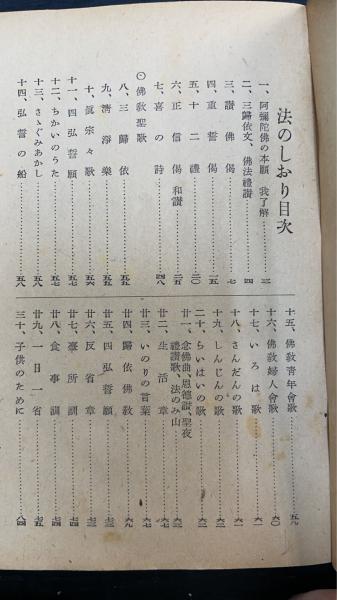 法のしおり目次
一、阿彌陀佛の本願 我了解……三
二、三歸依文、佛法禮讃……四
三、讃佛偈……七
四、重誓偈……一五
五、十二禮……二〇
六、正信偈 和讃……二五
七、喜の詩……四八
◎佛教聖歌
八、三歸依……五五
九、淸淨樂……五五
十、眞宗々歌……五六
十一、四弘誓願……五七
十二、ちかいのうた……五七
十三、さゝぐみあかし……五八
十四、弘誓の船……五八
十五、佛教靑年會歌……五九
十六、佛教婦人會歌……六〇
十七、いろは歌……六一
十八、さんだんの歌……六一
十九、しんじんの歌……六二
二十、らいはいの歌……六二
廿一、念佛曲、恩德讃、聖夜
禮讃歌、法のみ山……六三
廿二、生活章……六七
廿三、いのりの言葉……六七
廿四、歸依佛教……六九
廿五、四弘誓願……七三
廿六、反省章……七三
廿七、臺所訓……七四
廿八、食事訓……七四
廿九、一日一省……七五
三十、子供のために……八四